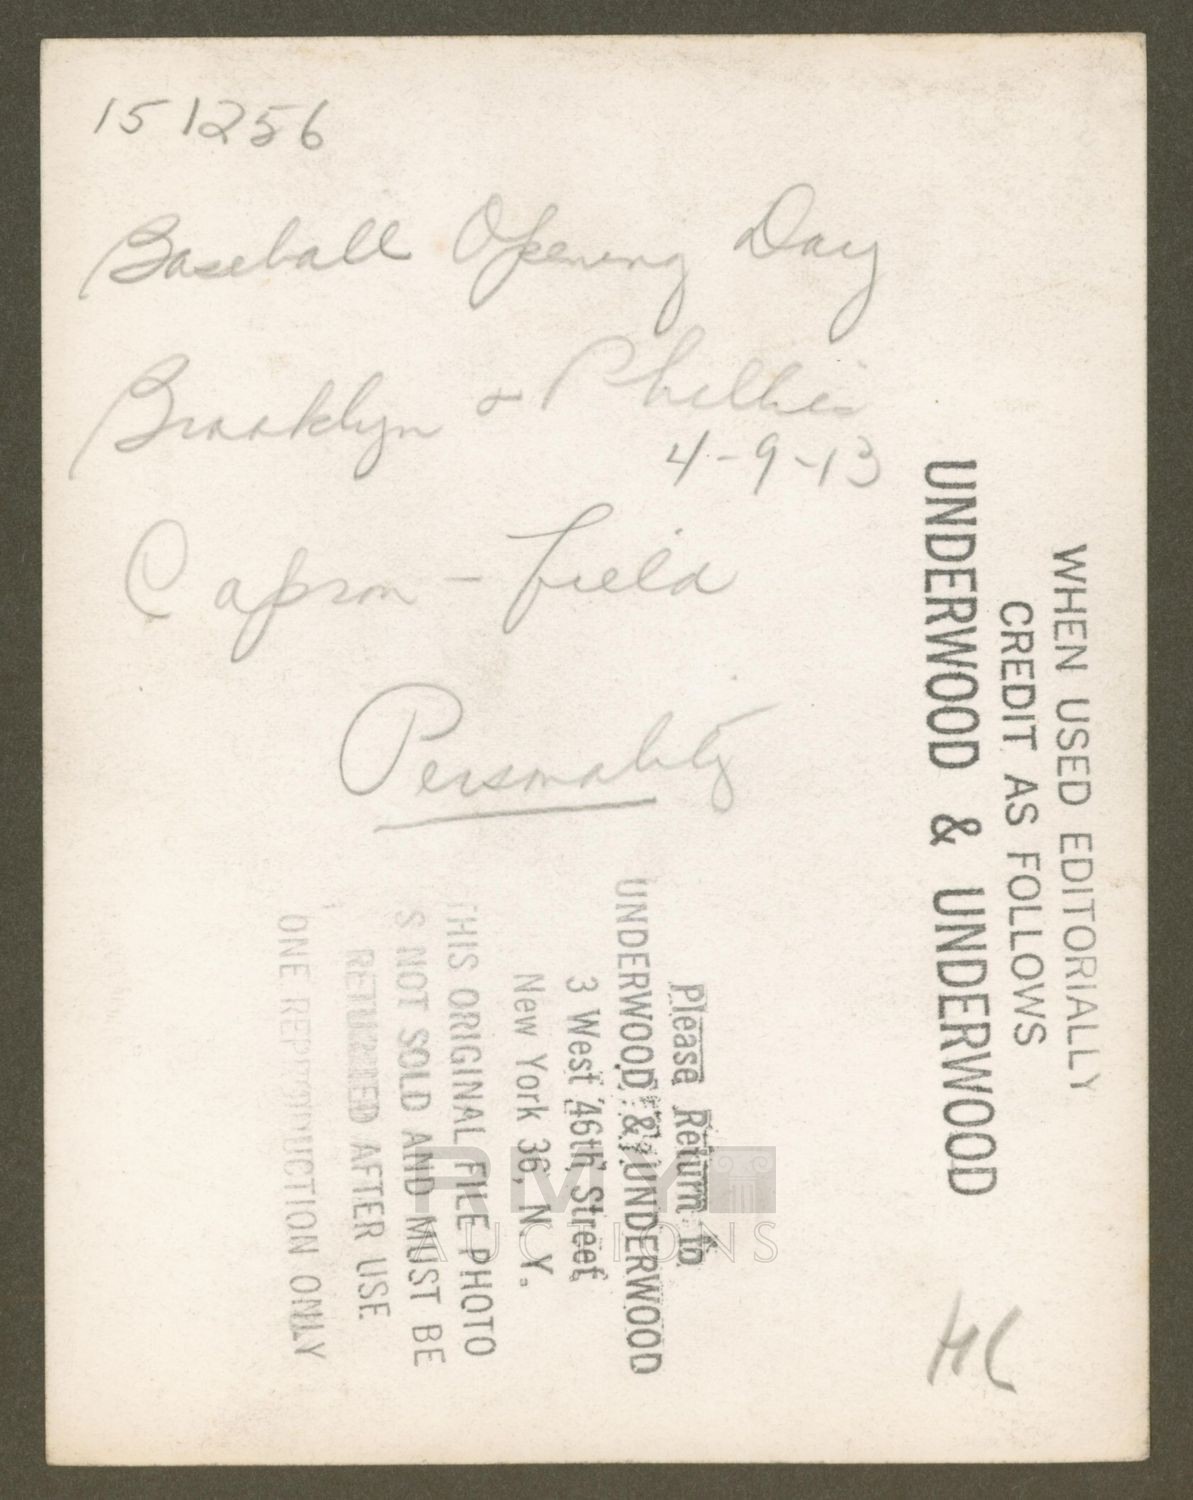 151256
Baseball Opening Day
Brooklyn & Phillies
4-9-13
Capron - Field
Personality
WHEN USED EDITORIALLY
CREDIT AS FOLLOWS
UNDERWOOD & UNDERWOOD
Please Return to
UNDERWOOD & UNDERWOOD
3 West 46th Street
New York 36, N.Y.
THIS ORIGINAL FILE PHOTO
S NOT SOLD AND MUST BE
RETURNED AFTER USE
ONE REPRODUCTION ONLY
RMY
AUCTIONS